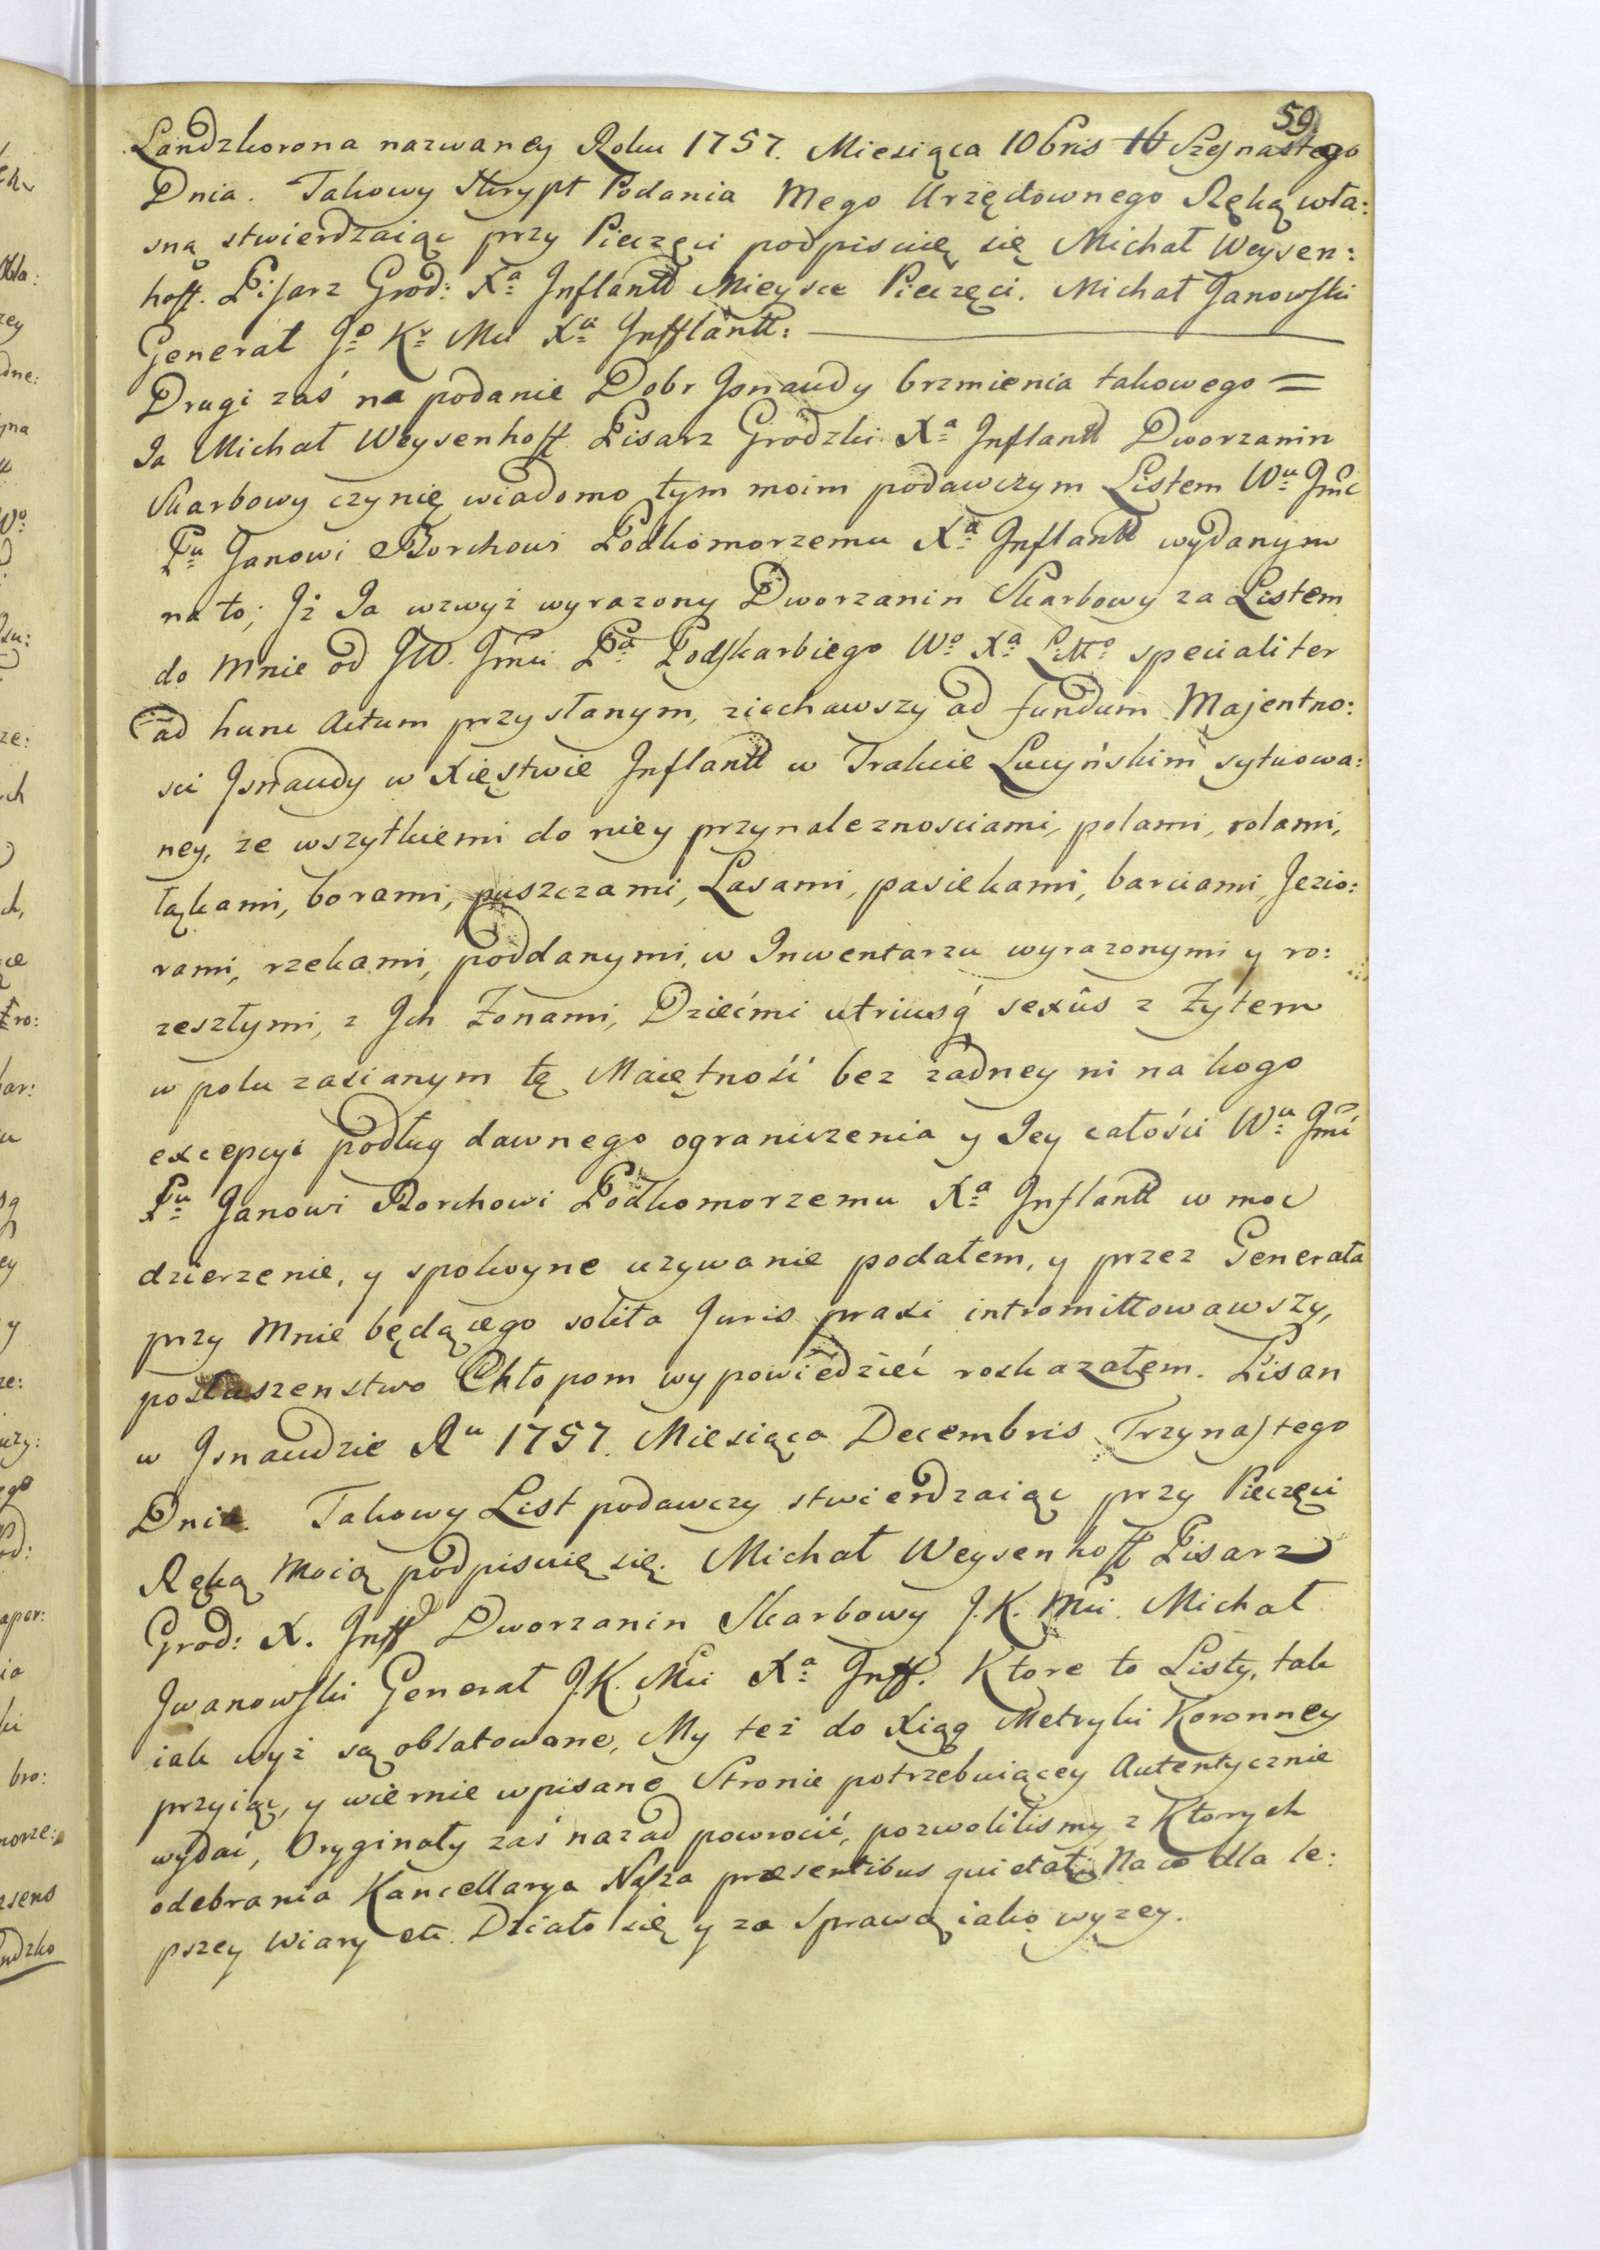 59
Landzkorona nazwaney Roku 1757. Miesiąca 10bris 16 Szesnastego
Dnia. Takowy Skrypt Podania Mego Urzędownego Ręką wła:
sną stwierdzaiąc przy Pieczęci podpisuię się Michał Weysen:
hoff. Pisarz Grod: Xa Inflantt Mieysce Pieczęci. Michał Janowski
Generał Jo Kr Mci Xa Infflantt:
Drugi zaś na podanie Dobr Isnaudy brzmienia takowego =
Ja Michał Weysenhoff Pisarz Grodzki Xa Inflantt Dworzanin
Skarbowy czynię wiadomo tym moim podawczym Listem Wu Jmć
Pu Janowi Borchowi Podkomorzemu Xa Inflantt wydanym
na to; Iż Ja wzwyż wyrazony Dworzanin Skarbowy za Listem
do Mnie od JW. Jmci Pa Podskarbiego Wo Xa Litto specialiter
ad hunc Actum przysłanym, ziechawszy ad fundum Majentno:
sci Isnaudy w Xięstwie Inflantt w Trakcie Lucyńskim sytuowa:
ney, ze wszytkiemi do niey przynaleznosciami, polami, rolami,
łąkami, borami, puszczami, Lasami, pasiekami, barciami, Jezio:
rami, rzekami, poddanymi, w Inwentarzu wyrazonymi y ro:
zeszłymi, z Ich Żonami, Dziećmi utriusq́ sexûs z Żytem
w polu zasianym tę Maiętność bez zadney ni na kogo
excepcyi podług dawnego ograniczenia y Jey całości Wu Jmć
Pu Janowi Borchowi Podkomorzemu Xa Inflantt w moc
dzierzenie, y spokoyne uzywanie podałem, y przez Generała
przy Mnie będącego solita Juris praxi intromittowawszy,
posłuszenstwo Chłopom wypowiedzieć roskazałem. Pisan
w Isnaudzie Ru 1757. Miesiąca Decembris Trzynastego
Dnia. Takowy List podawczy stwierdzaiąc przy Pieczęci
Ręką Moią podpisuię się. Michał Weysenhoff Pisarz
Grod: X. Inff Dworzanin Skarbowy J.K. Mci. Michał
Iwanowski Generał J.K. Mci Xa Inff. Ktore to Listy, tak
iak wyż są oblatowane, My też do Xiąg Metryki Koronney
przyiąc, y wiernie wpisane Stronie potrzebuiącey Autentycznie
wydać, Oryginały zaś nazad powrocić, pozwolilismy, z Ktorych
odebrania Kancellarya Nasza præsentibus quietat. Na co dla le:
pszey Wiary etc. Działo się y za Sprawą iako wyzey.